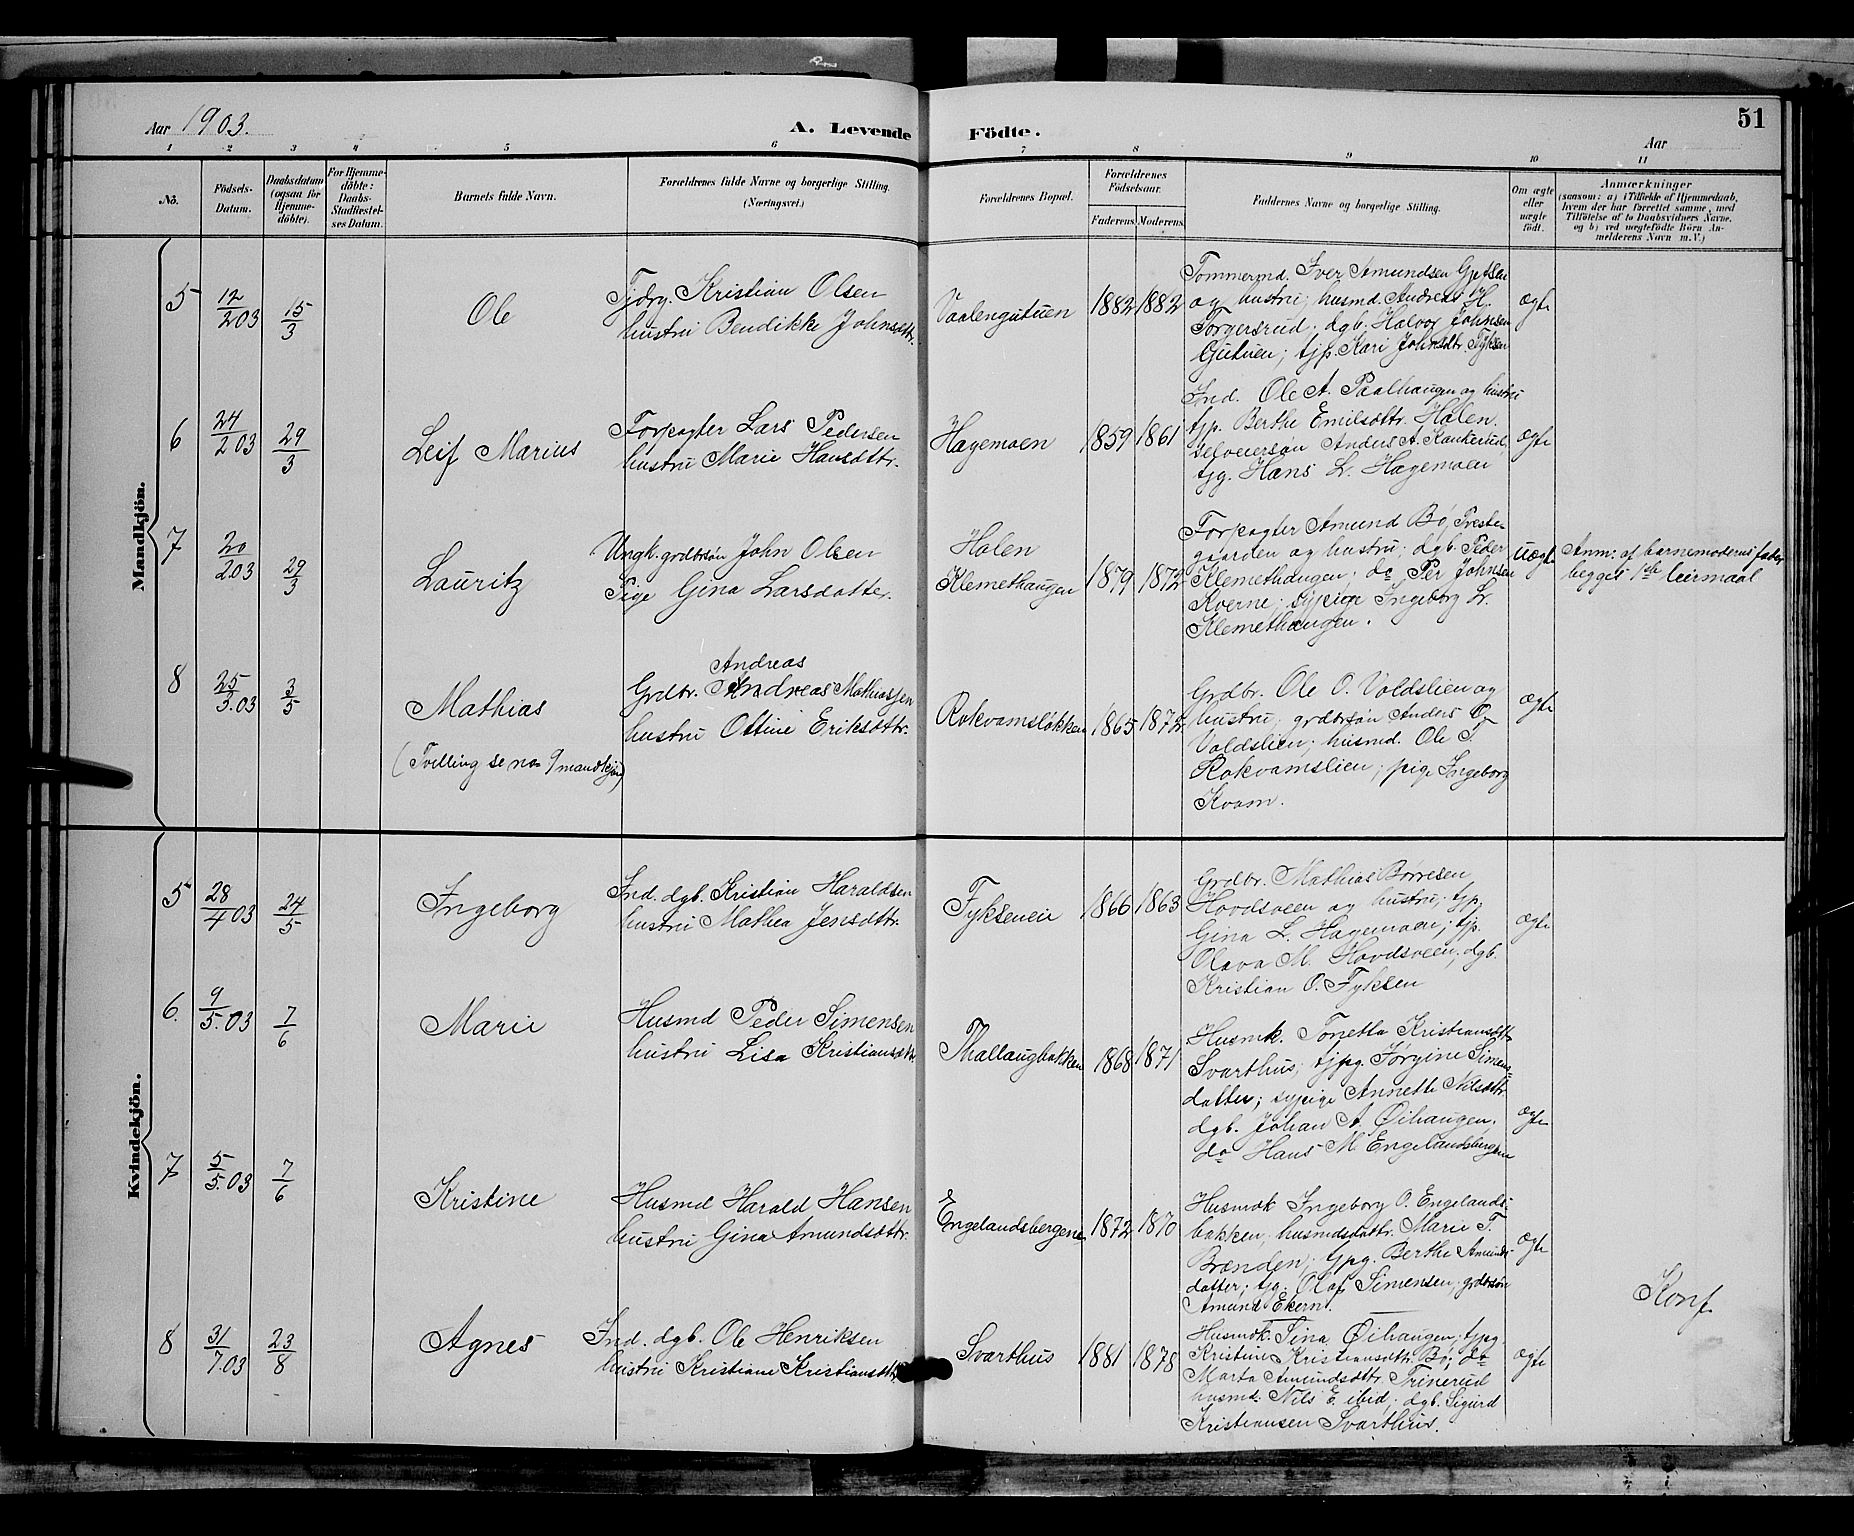 Aar 1903.
A. Levende Födte.
51
Aar
1 2 3 4 5 6 7 8 9 10 11
No.
Födsels-Datum.
Daabsdatum (ogsaa for Hjemmedöbte).
For Hjemmedöbte: Daabs-Stadfæstelses Datum.
Barnets fulde Navn.
Forældrenes fulde Navne og borgerlige Stilling. (Næringsvei.)
Forældrenes Bopæl.
Forældrenes Födselsaar.
Faderens. Moderens.
Faddernes Navne og borgerlige Stilling.
Om ægte eller uægte födt.
Anmærkninger
(saasom: a) i Tilfælde af Hjemmedaab,
hvem der har forrettet samme, med
Tilföielse af to Daabsvidners Navne,
og b) ved uægtefödte Börn An-
melderens Navn m.V.)
Mandkjön.
5 12/2 03 15/3 Ole
Kristian Olsen
hustru Bendikke Johnsdttr.
Vaalengutuen 1882 1882
Tømmermd. Iver Amundsen
og hustru; husmd. Andreas H.
Torgersrud; dgb. Halvor Johnsen
Gutuen; tjp. Kari Johnsdtr. Fyksen
ægte
6 24/2 03 29/3 Leif Marius
Forpagter Lars Pedersen
hustru Marie Hansdttr.
Hagemoen 1859 1861
Ind. Ole A. Paalhaugen og hustru
tjp. Berthe Emilsdttr. Holen.
selveiersøn Anders A. Kankerud,
tjg. Hans L. Hagemoen
ægte
7 20/2 03 29/3 Lauritz
Ungk. grdbrsøn John Olsen
Pige Gina Larsdatter.
Holen
Klemethaugen 1879 1872
Forpagter Amund Bø, Preste-
gaarden og hustru; dgb. Peder
Klemethaugen; do Per Johnsen
Kverne; sypige Ingeborg L.
Klemethaugen.
uægte
Anm: af barnemoderens fader
begges 1ste leiermaal
8 25/3.03 3/5 Mathias
(Tvilling se no 9 mandkjøn)
Andreas
Grdbr. Andreas Mathiassen
hustru Ottine Eriksdttr.
Rokvamsløkken 1865 1872
Grdbr. Ole O. Voldslien og
hustru; grdbrsøn Anders O.
Voldslien; husmd. Ole T.
Rokvamslien; pige Ingeborg
Kvam.
ægte
Kvindekjön.
5 28/4 03 24/5 Ingeborg
Ind. dgb. Kristian Haraldsen
hustru Mathea Jensdttr.
Fykseneie 1866 1863
Grdbr. Mathias Børresen
Hovdsveen og hustru; tjp.
Gina L. Hagemoen; tjp.
Olava M. Hovdsveen; dgb.
Kristian O. Fyksen
ægte
6. 9/5.03 7/6 Marie
Husmd Peder Simensen
hustru Lisa Kristiansdttr
Thallaugbakken 1868 1871
Husmk. Tonetta Kristiansdttr
Svarthus; tjpg. Jørgine Simens-
datter; sypige Annette Nilsdttr.
dgb. Johan A. Øihaugen,
do Hans M. Engelandsbergene
ægte
7 5/5.03 7/6 Kristine
Husmd Harald Hansen
hustru Gina Amundsdttr.
Engelandsbergene 1872 1870
Husmdk Ingeborg O. Engelands-
bakken; husmdsdattr. Marie T.
Brænden; tjpg. Berthe Amunds-
datter; tjg. Olaf Simensen; grdbrsøn
Amund Ekern.
ægte
8 31/7.03 23/8 Agnes
Ind. dgb. Ole Henriksen
hustru Kristiane Kristiansdttr.
Svarthus 1881 1878
Husmdk. Tina Øihaugen; tjpg.
Kristine Kristiansdttr. Bø; do
Marta Amundsdttr. Trinerud
husmd. Nils E. ibid; dgb. Sigurd
Kristiansen Svarthus.
ægte
Konf.